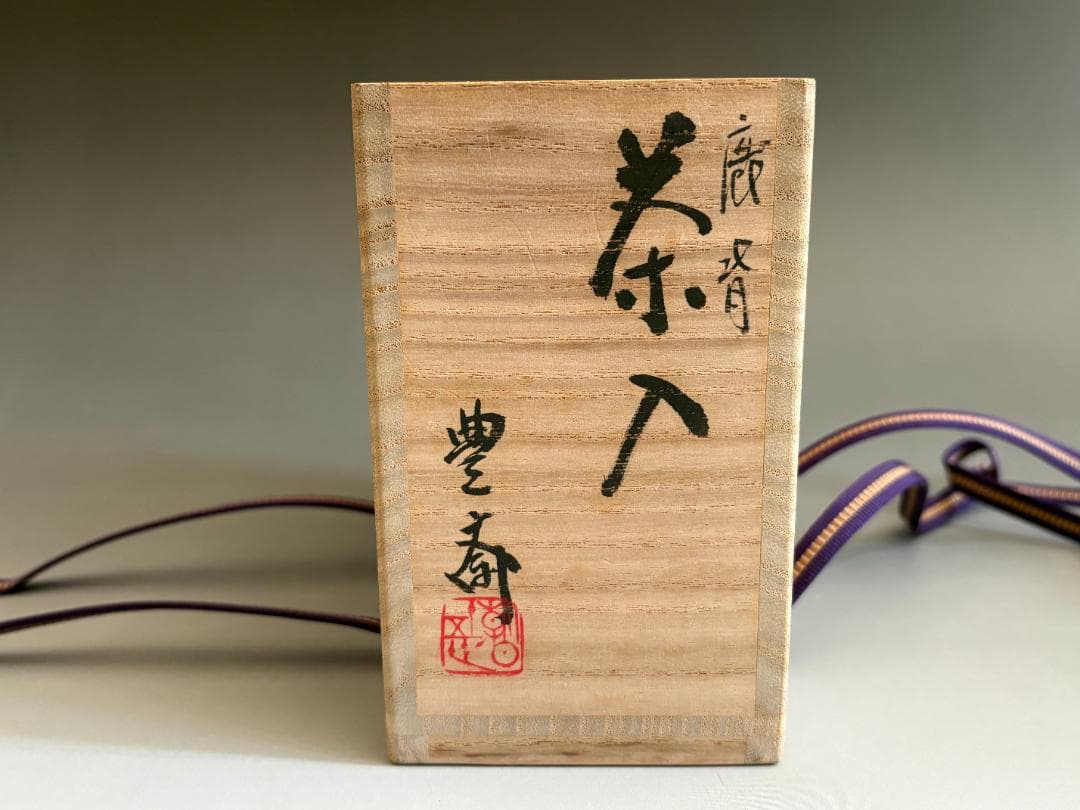 鹿背
茶入
豊斎